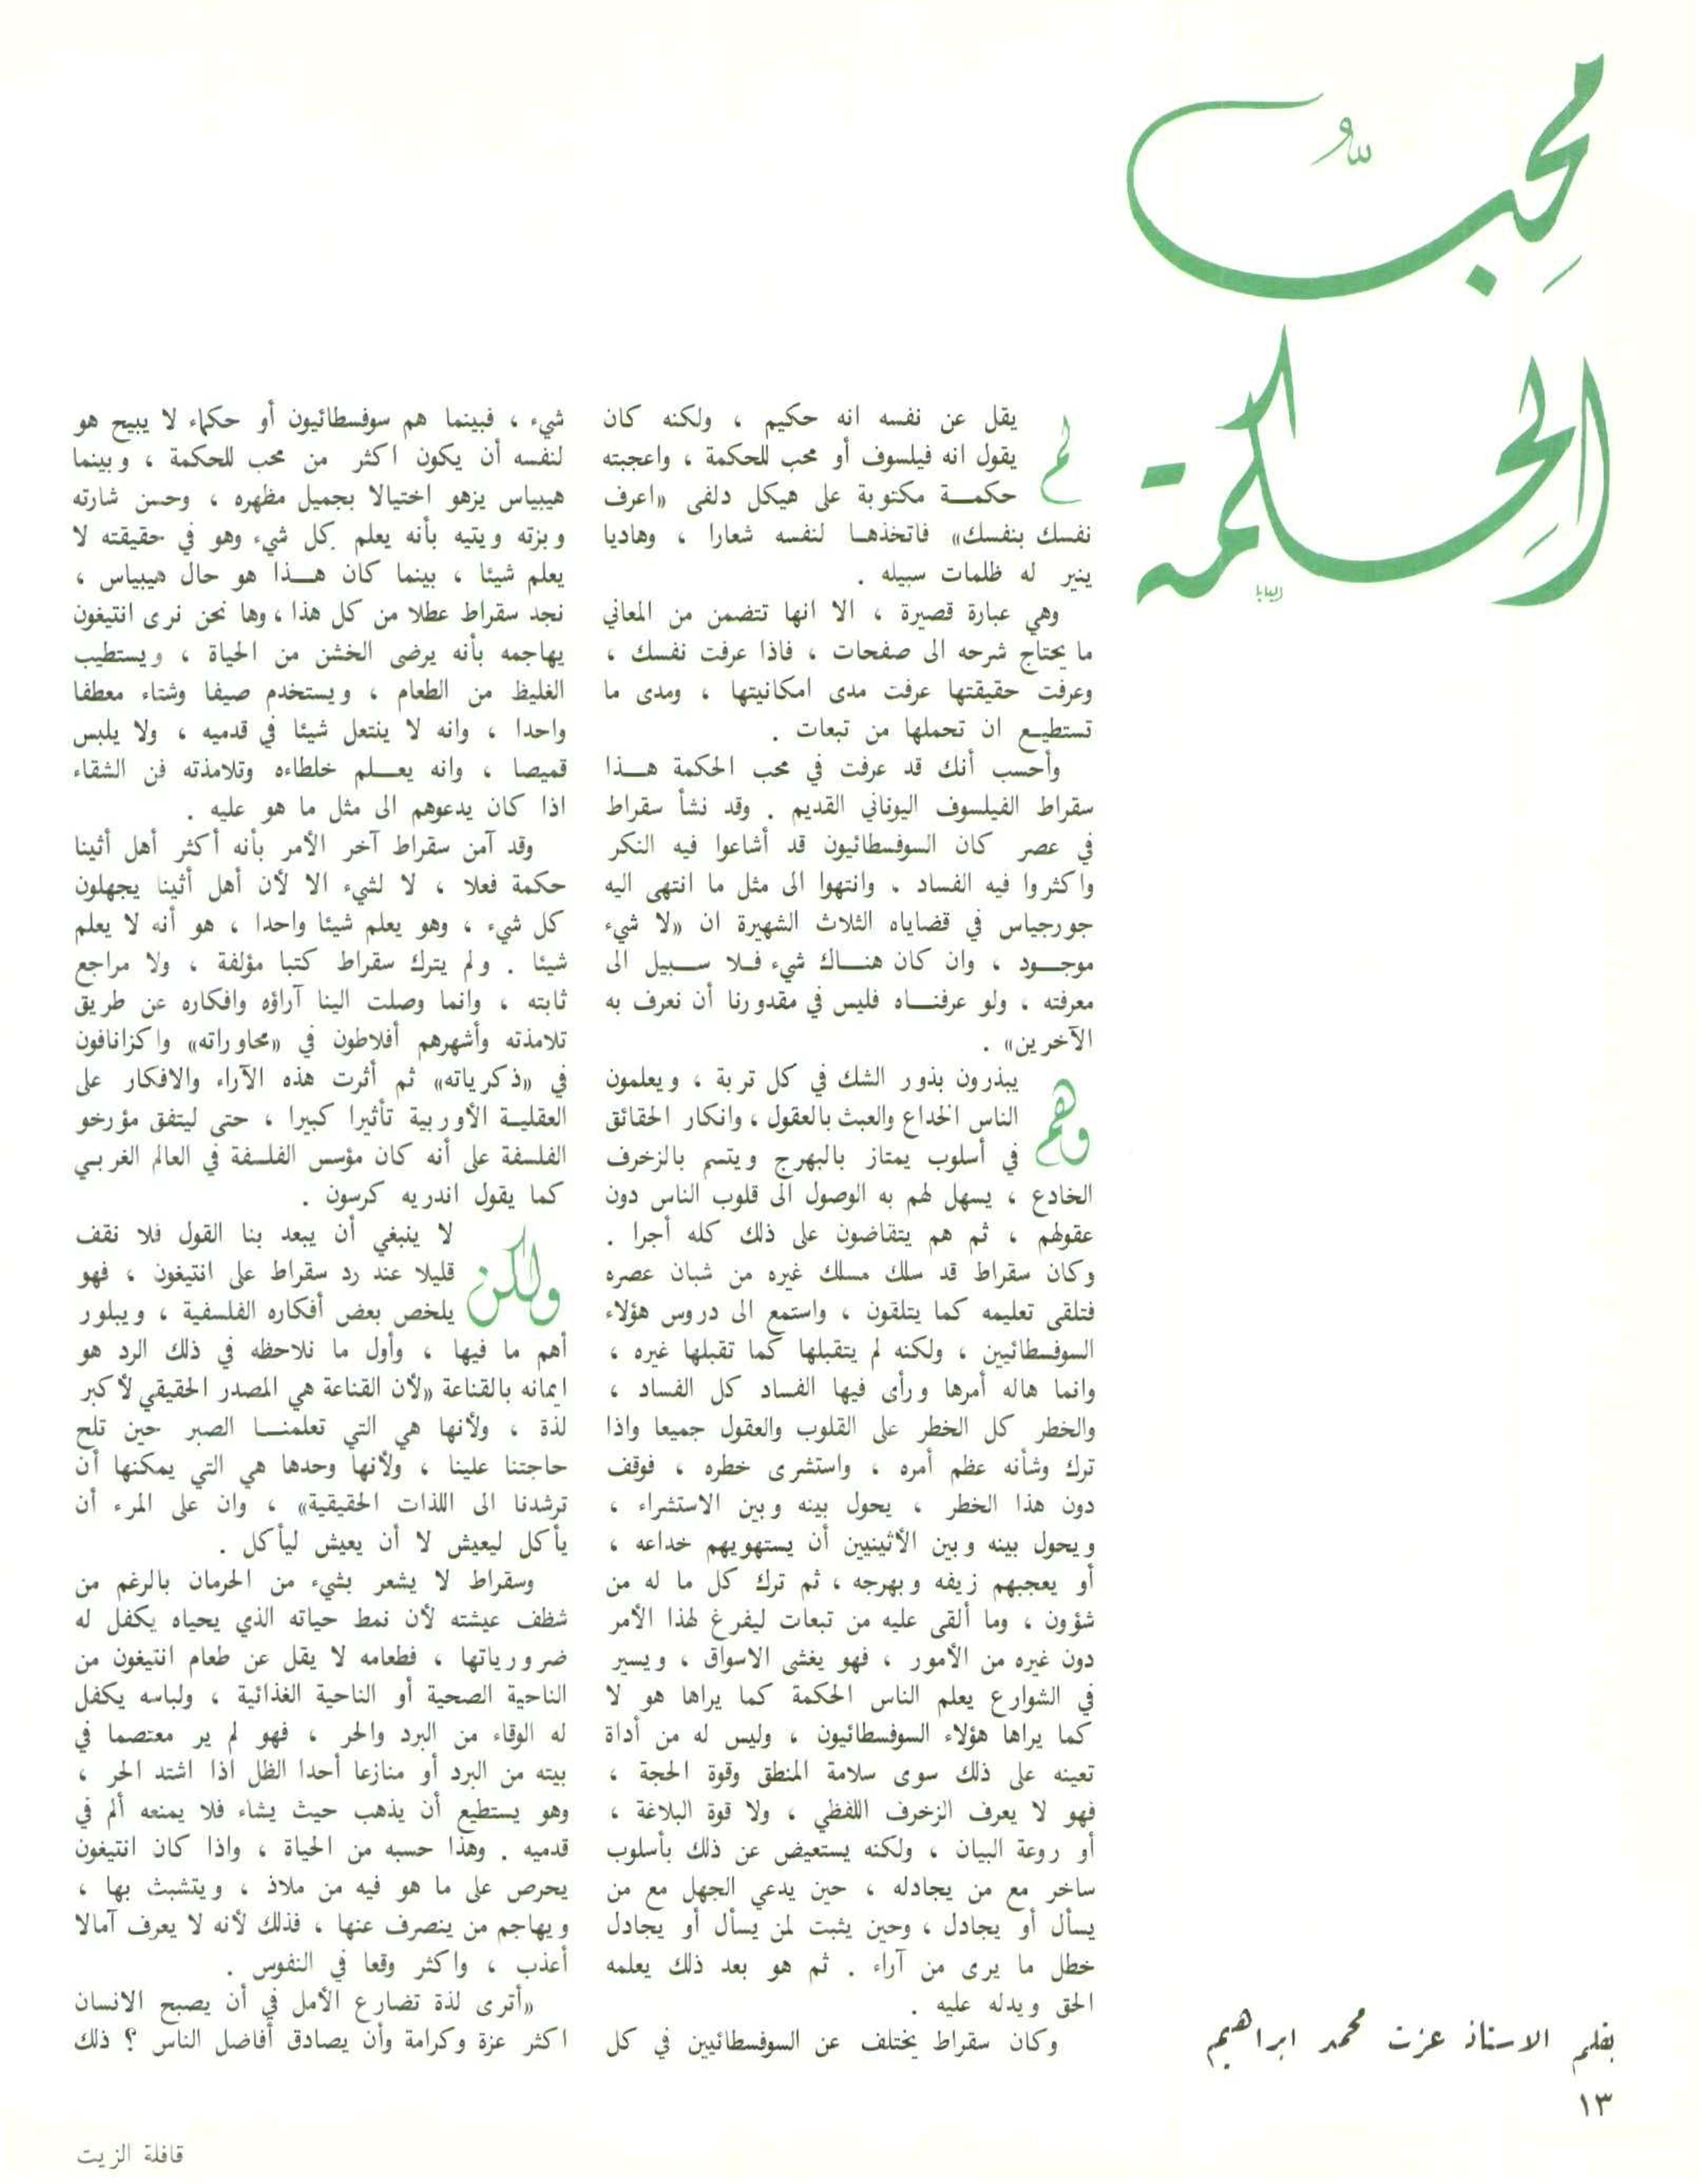 محب
الحكمة
لم يقل عن نفسه انه حكيم ، ولكنه كان
يقول انه فيلسوف أو محب للحكمة ، واعجبته
حكمـــة مكتوبة على هيكل دلفى «اعرف
نفسك بنفسك» فاتخذهــا لنفسه شعارا ، وهاديا
ينير له ظلمات سبيله .
وهي عبارة قصيرة ، الا انها تتضمن من المعاني
ما يحتاج شرحه الى صفحات ، فاذا عرفت نفسك ،
وعرفت حقيقتها عرفت مدى امكانيتها ، ومدى ما
تستطيـع ان تحملها من تبعات .
وأحسب أنك قد عرفت في محب الحكمة هــذا
سقراط الفيلسوف اليوناني القديم . وقد نشأ سقراط
في عصر كان السوفسطائيون قد أشاعوا فيه النكر
واكثروا فيه الفساد ، وانتهوا الى مثل ما انتهى اليه
جورجياس في قضاياه الثلاث الشهيرة ان «لا شيء
موجــود ، وان كان هنــاك شيء فــلا ســبيل الى
معرفته ، ولو عرفنــاه فليس في مقدورنا أن نعرف به
الآخرين» .
وهم يبذرون بذور الشك في كل تربة ، ويعلمون
الناس الخداع والعبث بالعقول ، وانكار الحقائق
في أسلوب يمتاز بالبهرج ويتسم بالزخرف
الخادع ، يسهل لهم به الوصول الى قلوب الناس دون
عقولهم ، ثم هم يتقاضون على ذلك كله أجرا .
وكان سقراط قد سلك مسلك غيره من شبان عصره
فتلقى تعليمه كما يتلقون ، واستمع الى دروس هؤلاء
السوفسطائيين ، ولكنه لم يتقبلها كما تقبلها غيره ،
وانما هاله أمرها ورأى فيها الفساد كل الفساد ،
والخطر كل الخطر على القلوب والعقول جميعا واذا
ترك وشأنه عظم أمره ، واستشرى خطره ، فوقف
دون هذا الخطر ، يحول بينه وبين الاستشراء ،
ويحول بينه وبين الأثينيين أن يستهويهم خداعه ،
أو يعجبهم زيفه وبهرجه ، ثم ترك كل ما له من
شؤون ، وما ألقى عليه من تبعات ليفرغ لهذا الأمر
دون غيره من الأمور ، فهو يغشى الاسواق ، ويسير
في الشوارع يعلم الناس الحكمة كما يراها هو لا
كما يراها هؤلاء السوفسطائيون ، وليس له من أداة
تعينه على ذلك سوى سلامة المنطق وقوة الحجة ،
فهو لا يعرف الزخرف اللفظي ، ولا قوة البلاغة ،
أو روعة البيان ، ولكنه يستعيض عن ذلك بأسلوب
ساخر مع من يجادله ، حين يدعي الجهل مع من
يسأل أو يجادل ، وحين يثبت لمن يسأل أو يجادل
خطل ما يرى من آراء . ثم هو بعد ذلك يعلمه
الحق ويدله عليه .
وكان سقراط يختلف عن السوفسطائيين في كل
شيء ، فبينما هم سوفسطائيون أو حكماء لا يبيح هو
لنفسه أن يكون اكثر من محب للحكمة ، وبينما
هيبياس يزهو اختيالا بجميل مظهره ، وحسن شارته
وبزته ويتيه بأنه يعلم كل شيء وهو في حقيقته لا
يعلم شيئا ، بينما كان هــذا هو حال هيبياس ،
نجد سقراط عطلا من كل هذا ، وها نحن نرى انتيغون
يهاجمه بأنه يرضى الخشن من الحياة ، ويستطيب
الغليظ من الطعام ، ويستخدم صيفا وشتاء معطفا
واحدا ، وانه لا ينتعل شيئا في قدميه ، ولا يلبس
قميصا ، وانه يعــلم خلطاءه وتلامذته فن الشقاء
اذا كان يدعوهم الى مثل ما هو عليه .
وقد آمن سقراط آخر الأمر بأنه أكثر أهل أثينا
حكمة فعلا ، لا لشيء الا لأن أهل أثينا يجهلون
كل شيء ، وهو يعلم شيئا واحدا ، هو أنه لا يعلم
شيئا . ولم يترك سقراط كتبا مؤلفة ، ولا مراجع
ثابته ، وانما وصلت الينا آراؤه وافكاره عن طريق
تلامذته وأشهرهم أفلاطون في «محاوراته» واكزانافون
في «ذكرياته» ثم أثرت هذه الآراء والافكار على
العقليــة الأوربية تأثيرا كبيرا ، حتى ليتفق مؤرخو
الفلسفة على أنه كان مؤسس الفلسفة في العالم الغربي
كما يقول اندريه كرسون .
ولكن لا ينبغي أن يبعد بنا القول فلا نقف
قليلا عند رد سقراط على انتيغون ، فهو
يلخص بعض أفكاره الفلسفية ، ويبلور
أهم ما فيها ، وأول ما نلاحظه في ذلك الرد هو
ايمانه بالقناعة «لأن القناعة هي المصدر الحقيقي لأكبر
لذة ، ولأنها هي التي تعلمنــا الصبر حين تلح
حاجتنا علينا ، ولأنها وحدها هي التي يمكنها أن
ترشدنا الى اللذات الحقيقية» ، وان على المرء أن
يأكل ليعيش لا أن يعيش ليأكل .
وسقراط لا يشعر بشيء من الحرمان بالرغم من
شظف عيشته لأن نمط حياته الذي يحياه يكفل له
ضرورياتها ، فطعامه لا يقل عن طعام انتيغون من
الناحية الصحية أو الناحية الغذائية ، ولباسه يكفل
له الوقاء من البرد والحر ، فهو لم ير معتصما في
بيته من البرد أو منازعا أحدا الظل اذا اشتد الحر ،
وهو يستطيع أن يذهب حيث يشاء فلا يمنعه ألم في
قدميه . وهذا حسبه من الحياة ، واذا كان انتيغون
يحرص على ما هو فيه من ملاذ ، ويتشبث بها ،
ويهاجم من ينصرف عنها ، فذلك لأنه لا يعرف آمالا
أعذب ، واكثر وقعا في النفوس .
«أترى لذة تضارع الأمل في أن يصبح الانسان
اكثر عزة وكرامة وأن يصادق أفاضل الناس ؟ ذلك
بقلم الاستاذ عزت محمد ابراهيم
١٣
قافلة الزيت